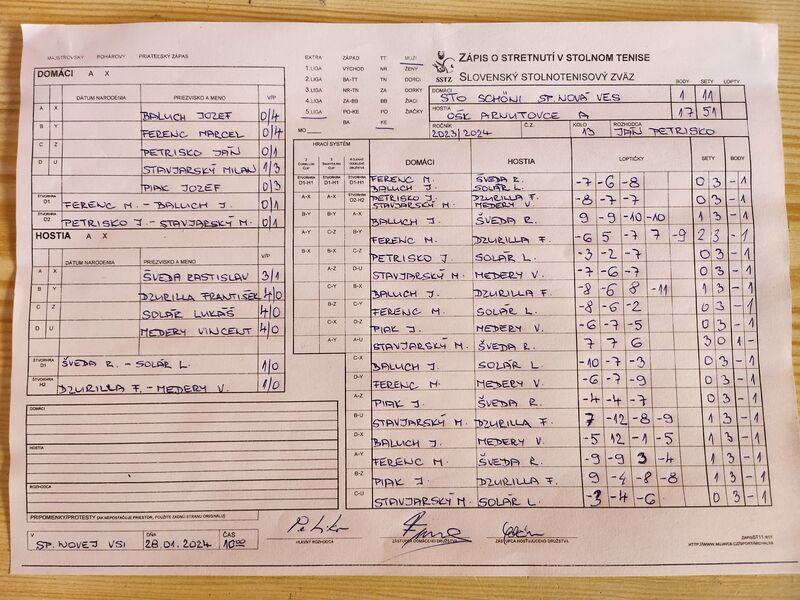 MAJSTROVSKÝ POHÁROVÝ PRIATEĽSKÝ ZÁPAS
DOMÁCI A X
DÁTUM NARODENIA PRIEZVISKO A MENO V/P
A X BALUCH JOZEF 0/4
B Y FERENC MARCEL 0/4
C Z PETRISKO JÁN 0/1
D U STAVJARSKÝ MILAN 1/3
PIAK JOZEF 0/3
ŠTVORHRA D1 FERENC M. - BALUCH J. 0/1
ŠTVORHRA D2 PETRISKO J - STAVJARSKÝ M. 0/1
HOSTIA A X
DÁTUM NARODENIA PRIEZVISKO A MENO V/P
A X ŠVEDA RASTISLAV 3/1
B Y DZURILLA FRANTIŠEK 4/0
C Z SOLÁR LUKÁŠ 4/0
D U MEDERY VINCENT 4/0
ŠTVORHRA D1 ŠVEDA R. - SOLÁR L. 1/0
ŠTVORHRA H2 DZURILLA F. - MEDERY V. 1/0
DOMÁCI
HOSTIA
ROZHODCA
PRIPOMIENKY/PROTESTY (AK NEPOSTAČUJE PRIESTOR, POUŽITE ZADNÚ STRANU ORIGINÁLU)
V SP. NOVEJ VSI DŇA 28.01.2024 ČAS 10:00
EXTRA ZÁPAD TT MUŽI
1.LIGA VÝCHOD NR ŽENY
2.LIGA BA-TT TN DORCI
3.LIGA NR-TN ZA DORKY
4.LIGA ZA-BB BB ŽIACI
5.LIGA PO-KE PO ŽIAČKY
MO BA KE
SSTZ
ZÁPIS O STRETNUTÍ V STOLNOM TENISE
SLOVENSKÝ STOLNOTENISOVÝ ZVÄZ
BODY SETY LOPTY
DOMÁCI STO SCHÖNI SP. NOVÁ VES 1 11
HOSTIA OŠK ARNUTOVCE A 17 51
ROČNÍK 2023/2024 Č.Z. KOLO 13 ROZHODCA JÁN PETRISKO
HRACÍ SYSTÉM DOMÁCI HOSTIA LOPTIČKY SETY BODY
ŠTVORHRA D1-H1 ŠTVORHRA D1-H1 ŠTVORHRA D1-H1 FERENC M. BALUCH J. ŠVEDA R. SOLÁR L. -7 -6 -8 0 3 -1
A-X A-X ŠTVORHRA D2-H2 PETRISKO J. STAVJARSKÝ M. DZURILLA F. MEDERY V. -8 -7 -7 0 3 -1
B-Y B-Y A-X BALUCH J. ŠVEDA R. 9 -9 -10 -10 1 3 -1
A-Y C-Z B-Y FERENC M. DZURILLA F. -6 5 -7 7 -9 2 3 -1
B-X B-X C-Z PETRISKO J. SOLÁR L. -3 -2 -7 0 3 -1
A-Z D-U STAVJARSKÝ M. MEDERY V. -7 -6 -7 0 3 -1
C-Y B-X BALUCH J. DZURILLA F. -8 -6 8 -11 1 3 -1
B-Z C-Y FERENC M. SOLÁR L. -8 -6 -2 0 3 -1
C-X D-Z PIAK J. MEDERY V. -6 -7 -5 0 3 -1
A-Y A-U STAVJARSKÝ M. ŠVEDA R. 7 7 6 3 0 1 -
C-X BALUCH J. SOLÁR L. -10 -7 -3 0 3 -1
D-Y FERENC M. MEDERY V. -6 -7 -9 0 3 -1
A-Z PIAK J. ŠVEDA R. -4 -4 -7 0 3 -1
B-U STAVJARSKÝ M. DZURILLA F. 7 -12 -8 -9 1 3 -1
D-X BALUCH J. MEDERY V. -5 12 -1 -5 1 3 -1
A-Y FERENC M. ŠVEDA R. -9 -9 3 -4 1 3 -1
B-Z PIAK J. DZURILLA F. 9 -4 -8 -8 1 3 -1
C-U STAVJARSKÝ M. SOLÁR L. -3 -4 -6 0 3 -1
HLAVNÝ ROZHODCA ZÁSTUPCA DOMÁCEHO DRUŽSTVA ZÁSTUPCA HOSŤUJÚCEHO DRUŽSTVA